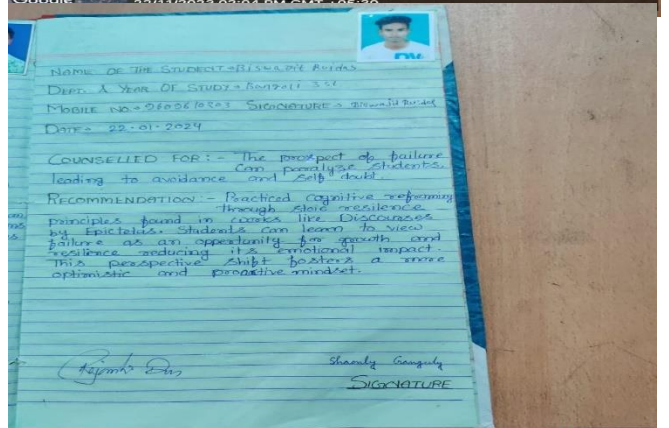 NAME OF THE STUDENT → Biswajit Ruidas
DEPT. & YEAR OF STUDY →
MOBILE NO → SIGNATURE → Biswajit Ruidas
DATE → 22-01-2024
COUNSELLED FOR :- The prospect of failure
can paralyze students,
leading to avoidance and self doubt.
RECOMMENDATION - Practiced cognitive reframing
through stoic resilence
principles found in works like Discourses
by Epictetus. Students can learn to view
failure as an opportunity for growth and
resilience reducing its emotional impact.
This perspective shift fosters a more
optimistic and proactive mindset.
Shaonly Ganguly
SIGNATURE